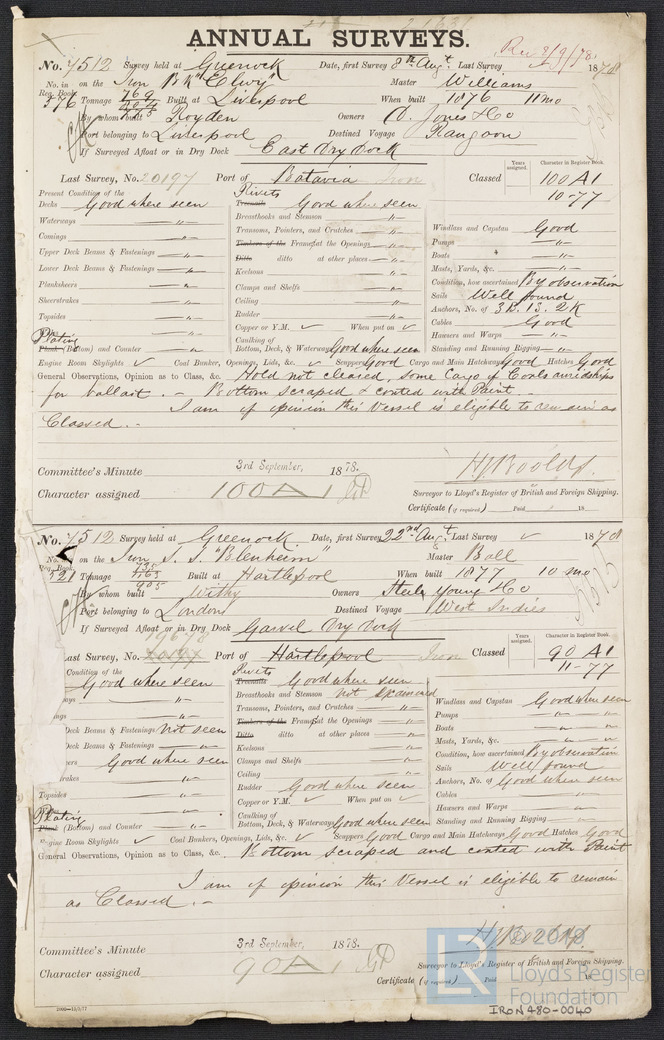 ANNUAL SURVEYS.
Rec 3/9/78
No. 7512 Survey held at Greenock Date, first Survey 8th Augt Last Survey 1878
No. in Reg. Book 576 on the Iron Bk "Elwy" Master Williams
Tonnage 769 Built at Liverpool When built 1876 11 mo
By whom built Royden Owners O. Jones & Co
Port belonging to Liverpool Destined Voyage Rangoon
If Surveyed Afloat or in Dry Dock East Dry Dock
Years assigned. Character in Register Book.
Last Survey, No. 20197 Port of Batavia Iron Classed 100 A1
10-77
Present Condition of the
Decks Good where seen
Waterways "
Comings "
Upper Deck Beams & Fastenings "
Lower Deck Beams & Fastenings "
Planksheers "
Sheerstrakes "
Topsides "
Plating
Plank (Bottom) and Counter "
Rivets
Treenails Good where seen
Breasthooks and Stemson "
Transoms, Pointers, and Crutches "
Timbers of the Frames at the Openings "
Ditto ditto at other places "
Keelsons "
Clamps and Shelfs "
Ceiling "
Rudder "
Copper or Y.M. ✓ When put on ✓
Caulking of
Bottom, Deck, & Waterways Good where seen
Windlass and Capstan Good
Pumps "
Boats "
Masts, Yards, &c. "
Condition, how ascertained By observation
Sails Well found
Anchors, No. of 3B. 1S. 2K
Cables Good
Hawsers and Warps "
Standing and Running Rigging "
Engine Room Skylights ✓ Coal Bunker, Openings, Lids, &c. ✓ Scuppers Good Cargo and Main Hatchways Good Hatches Good
General Observations, Opinion as to Class, &c. Hold not cleared, some Cargo of Coals amidships
for ballast. - Bottom scraped & coated with Paint. -
I am of opinion this Vessel is eligible to remain as
Classed. -
Committee's Minute 3rd September, 1878.
Character assigned 100 A 1
Surveyor to Lloyd's Register of British and Foreign Shipping.
Certificate (if required) Paid 18
No. 7512 Survey held at Greenock Date, first Survey 22nd Augt Last Survey ✓ 1878
No. in Reg. Book 521 on the Iron S.S. "Blenheim" Master Ball
Tonnage 1163 905 Built at Hartlepool When built 1877 10 mo
By whom built Withy Owners Steele Young & Co
Port belonging to London Destined Voyage West Indies
If Surveyed Afloat or in Dry Dock Garvel Dry Dock
Years assigned. Character in Register Book.
Last Survey, No. Port of Hartlepool Iron Classed 90 A1
11-77
Condition of the
Good where seen
ways "
ngs "
Deck Beams & Fastenings Not seen
Deck Beams & Fastenings "
ers Good where seen
rakes "
Topsides "
Plating
Plank (Bottom) and Counter "
Rivets
Treenails Good where seen
Breasthooks and Stemson not examined
Transoms, Pointers, and Crutches "
Timbers of the Frames at the Openings "
Ditto ditto at other places "
Keelsons "
Clamps and Shelfs "
Ceiling "
Rudder Good where seen
Copper or Y.M. ✓ When put on ✓
Caulking of
Bottom, Deck, & Waterways Good where seen
Windlass and Capstan Good where seen
Pumps "
Boats "
Masts, Yards, &c. "
Condition, how ascertained By observation
Sails Well found
Anchors, No. of Good where seen
Cables "
Hawsers and Warps "
Standing and Running Rigging "
Engine Room Skylights ✓ Coal Bunkers, Openings, Lids, &c. ✓ Scuppers Good Cargo and Main Hatchways Good Hatches Good
General Observations, Opinion as to Class, &c. Bottom scraped and coated with Paint
I am of opinion this Vessel is eligible to remain
as Classed. -
Committee's Minute 3rd September, 1878.
Character assigned 90 A 1
Surveyor to Lloyd's Register of British and Foreign Shipping.
Certificate (if required) Paid 18
LR © 2018
Lloyd's Register
Foundation
IRON480-0040